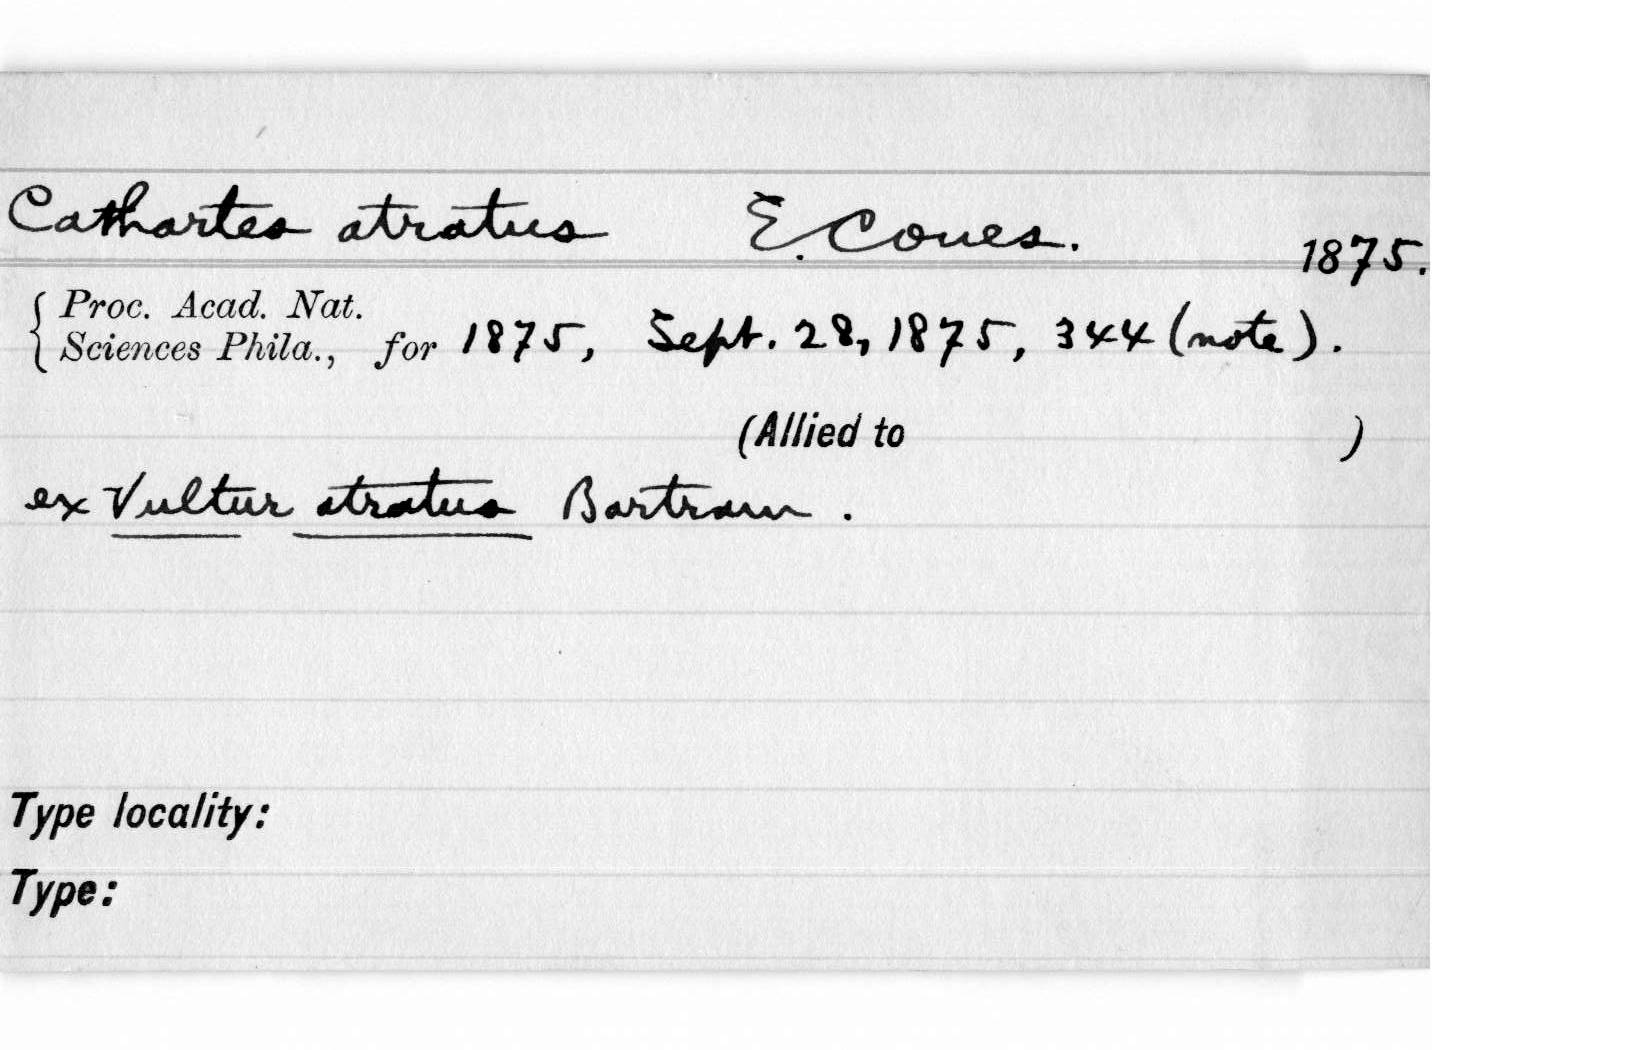 Cathartes atratus E. Coues. 1875.
Proc. Acad. Nat.
Sciences Phila., for 1875, Sept. 28, 1875, 344 (note).
(Allied to )
ex Vultur atratus Bartram.
Type locality:
Type: